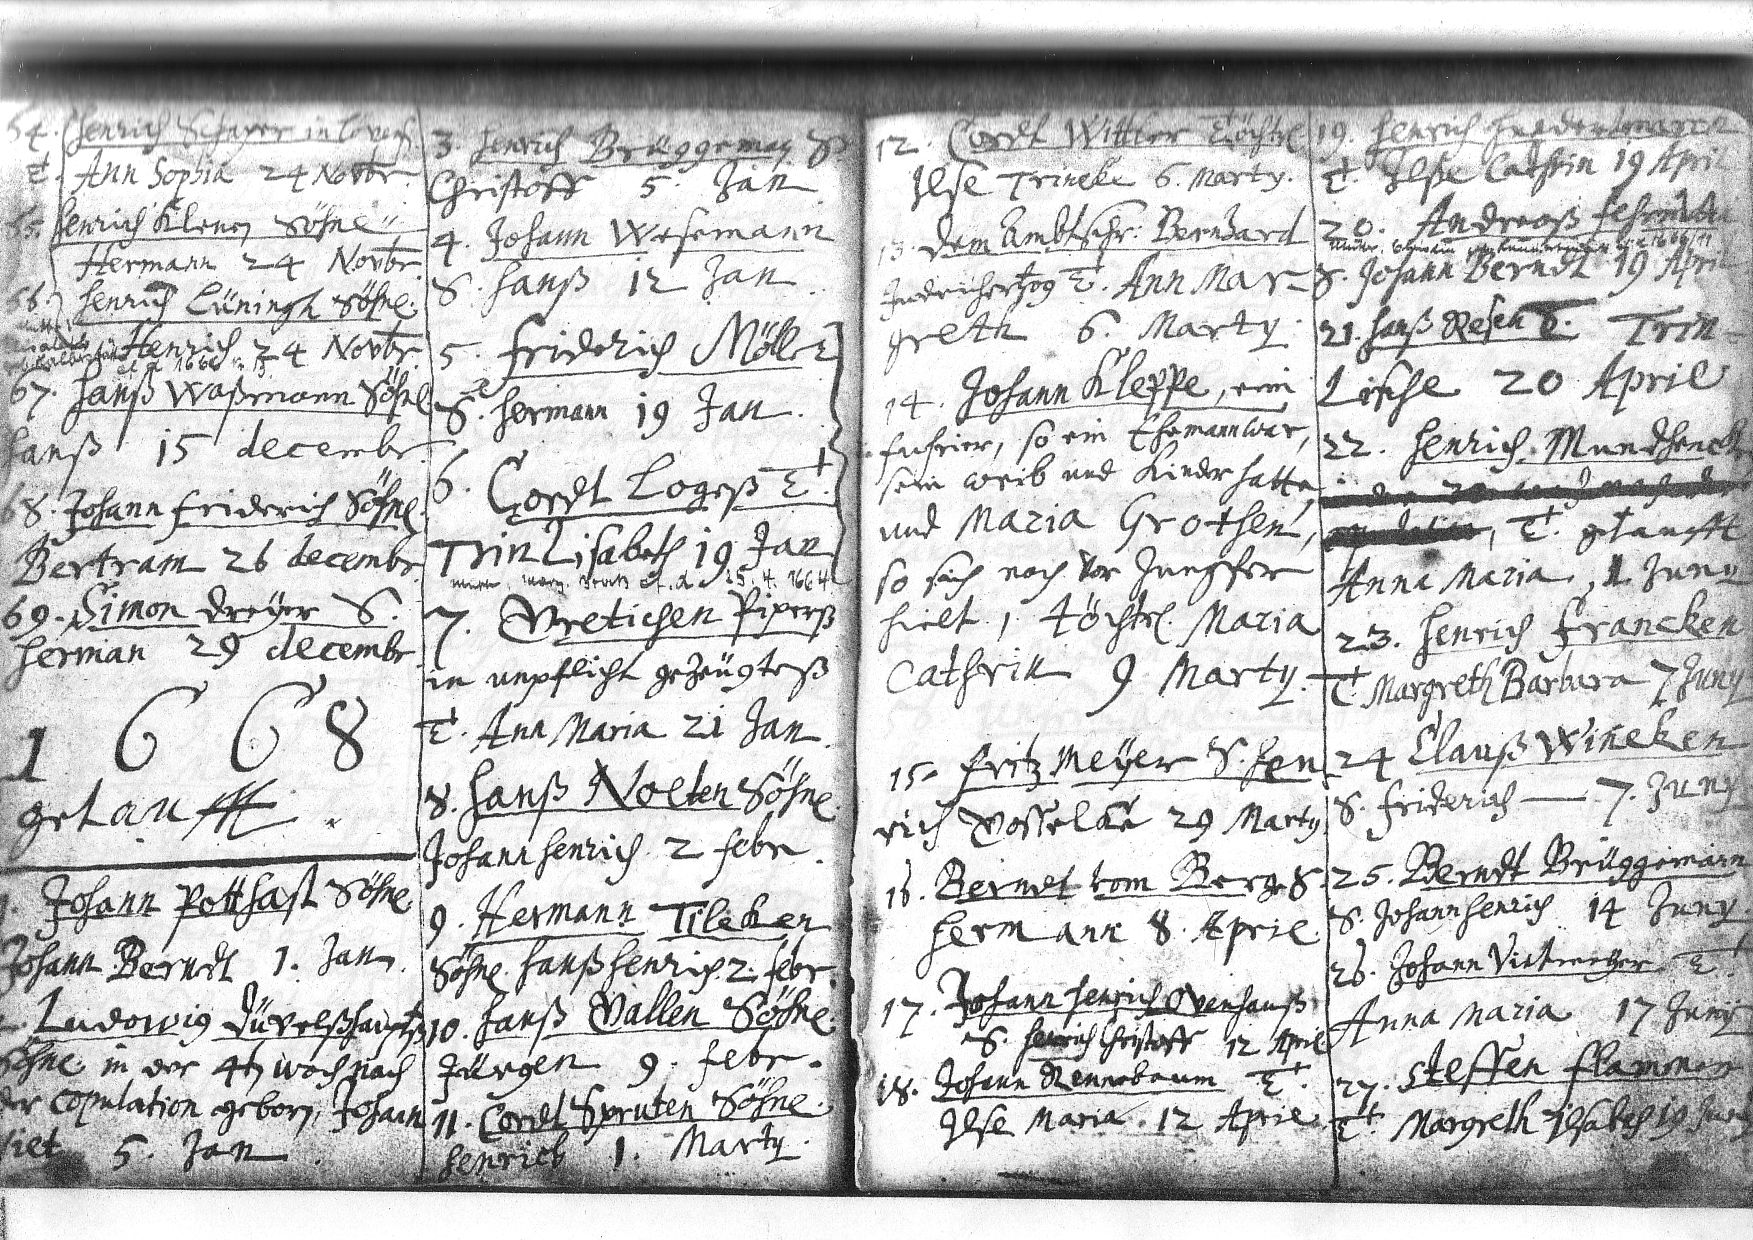 64. Henrich Schaper in loco
T. Ann Sophia 24 Novbr.
65. Henrich Klenen Söhnl.
Hermann 24 Novbr.
66. Henrich Lüningh Söhnl.
Henrich 24 Novbr.
1666
67. Hanß Waßmann Söhnl.
Hanß 15 decembr.
68. Johann Friderich Söhnl.
Bertram 26 decembr.
69. Simon Dreyer S.
Herman 29 decembr.
1668
getaufft.
1. Johann Potthast Söhnl.
Johann Berndt 1. Jan.
2. Ludowig Düvelßhaupts
Söhnl. in der 4tn woch nach
der Copulation geborn, Johan
5. Jan.
3. Henrich Brüggeman S.
Christoff 5. Jan
4. Johann Wesemann
S. Hanß 12 Jan.
5. Friderich Möller
S. Hermann 19 Jan.
6. Cordt Logeß T.
Trin Lisabeth 19 Jan
15. 4. 1664
7. Vretichen Piperß
in unpflicht gezeügteß
T. Ann Maria 21 Jan.
8. Hanß Nolten Söhnl.
Johann Henrich 2 Febr.
9. Hermann Tileken
Söhnl. Hanß Henrich 2. Febr.
10. Hanß Vallen Söhnl.
Jürgen 9. Febr.
11. Cordt Spruten Söhnl.
Henrich 1. Marty.
12. Cordt Wittler Töchtl.
Ilse Trineke 6. Marty.
13. dem Ambtschr. Bernhard
T. Ann Mar-
greth 6. Marty.
14. Johann Kleppe, ein
so ein Ehemann war,
sein weib und Kinder hatte,
und Maria Grothen,
so sich noch vor Jungfer
hielt, 1 Töchtl. Maria
Cathrin 9 Marty.
15. Fritz Meyer S. Hen
rich 29 Marty
16. Berndt vom Berge S.
Hermann 8. April
17. Johann Henrich Ovenhauß
S. Henrich Christoff 12 April
18. Johann Rennebaum T.
Ilse Maria. 12 April.
19. Henrich
T. Ilse Cathrin 19 April
20. Andreaß
S. Johann Berndt 19 April
21. Hanß Resen T. Trin-
Lische 20 April
22. Henrich Mundhenck
T. getaufft
Anna Maria, 1 Juny
23. Henrich Francken
T. Margreth Barbara 7 Juny
24 Clauß Wineken
S. Friderich — 7. Juny
25. Berndt Brüggemann
S. Johann Henrich 14 Juny.
26. Johann T.
Anna Maria 17 Juny
27. Steffen Flammen
T. Margreth Ilsabeh 19 Juny